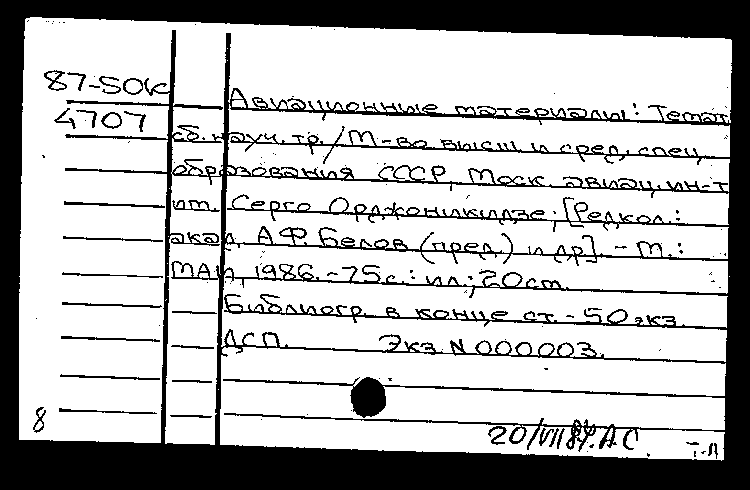 87-50к
4707
Авиационные материалы: Темат
сб. науч. тр. / М-во высш. и сред. спец.
образования СССР, Моск. авиац. ин-т
им. Серго Орджоникидзе; [Редкол.:
акад. А.Ф. Белов (пред.) и др]. - М.:
МАИ, 1986. - 75 с.: ил.; 20 см.
Библиогр. в конце ст. - 50 экз.
ДСП. Экз. N 000003.
8
20/VII А.С.
Т-П